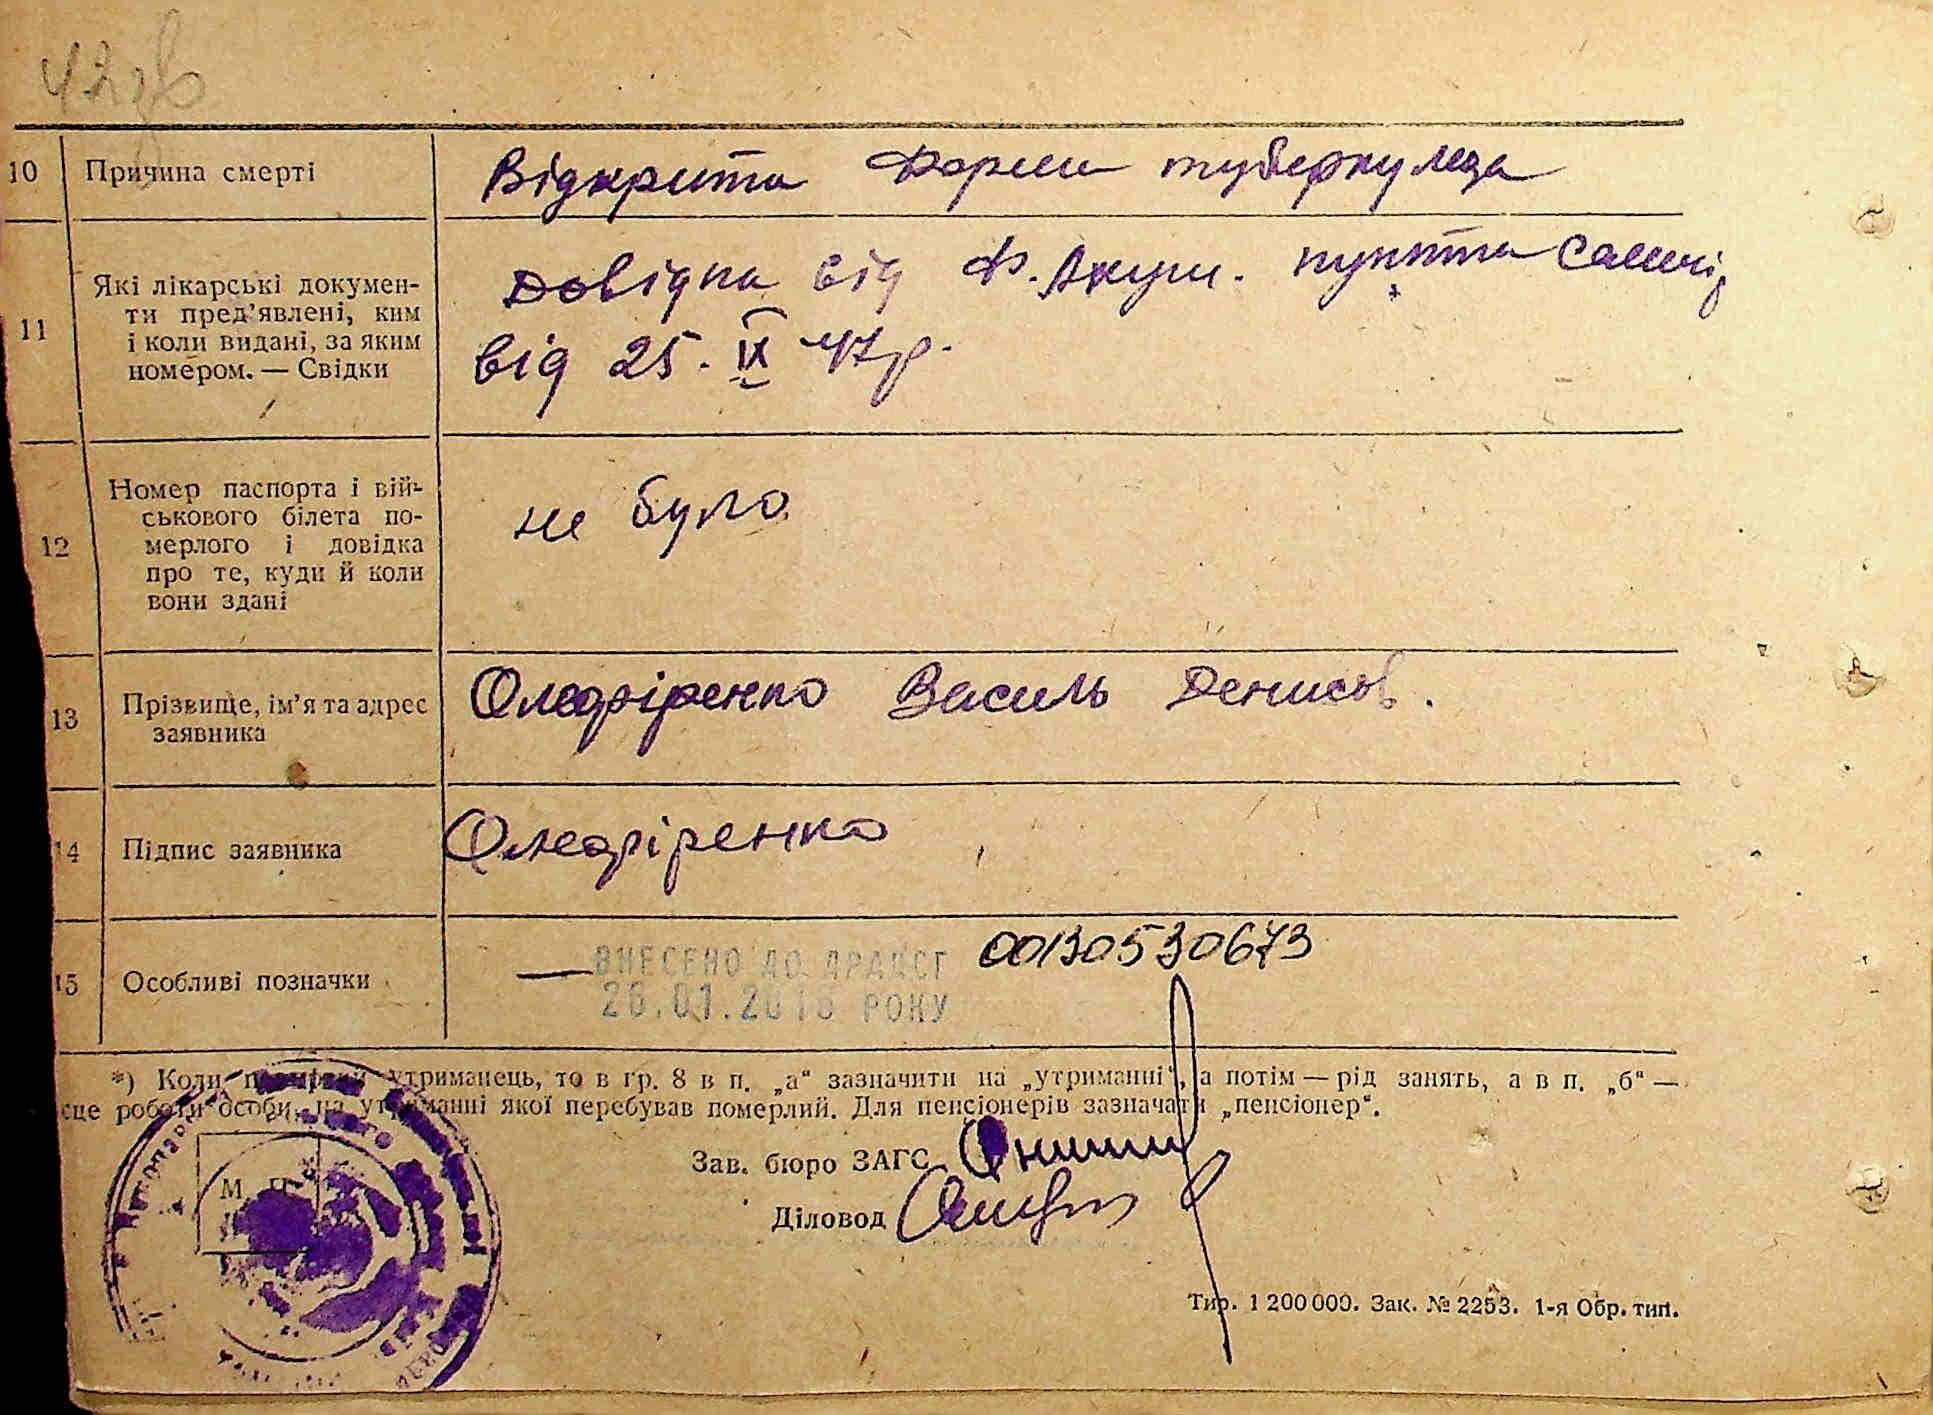 10 Причина смерті Відкрита форми туберкулеза
11 Які лікарські докумен-
ти пред’явлені, ким
і коли видані, за яким
номером. — Свідки
Довідка від Ф. Акуш. пункта
від 25. IX 47р.
12 Номер паспорта і вій-
ськового білета по-
мерлого і довідка
про те, куди й коли
вони здані
не було
13 Прізвище, ім’я та адрес
заявника
Олефіренко Василь Денисов.
14 Підпис заявника Олефіренко
15 Особливі позначки — ВНЕСЕНО ДО ДРАЦСГ 00130530673
26.01.2018 РОКУ
*) Коли померлий утриманець, то в гр. 8 в п. „а“ зазначити на „утриманні“, а потім — рід занять, а в п. „б“ —
сце роботи особи, на утриманні якої перебував померлий. Для пенсіонерів зазначати „пенсіонер“.
М. П.
Зав. бюро ЗАГС
Діловод
Тир. 1 200 000. Зак. № 2253. 1-я Обр. тип.